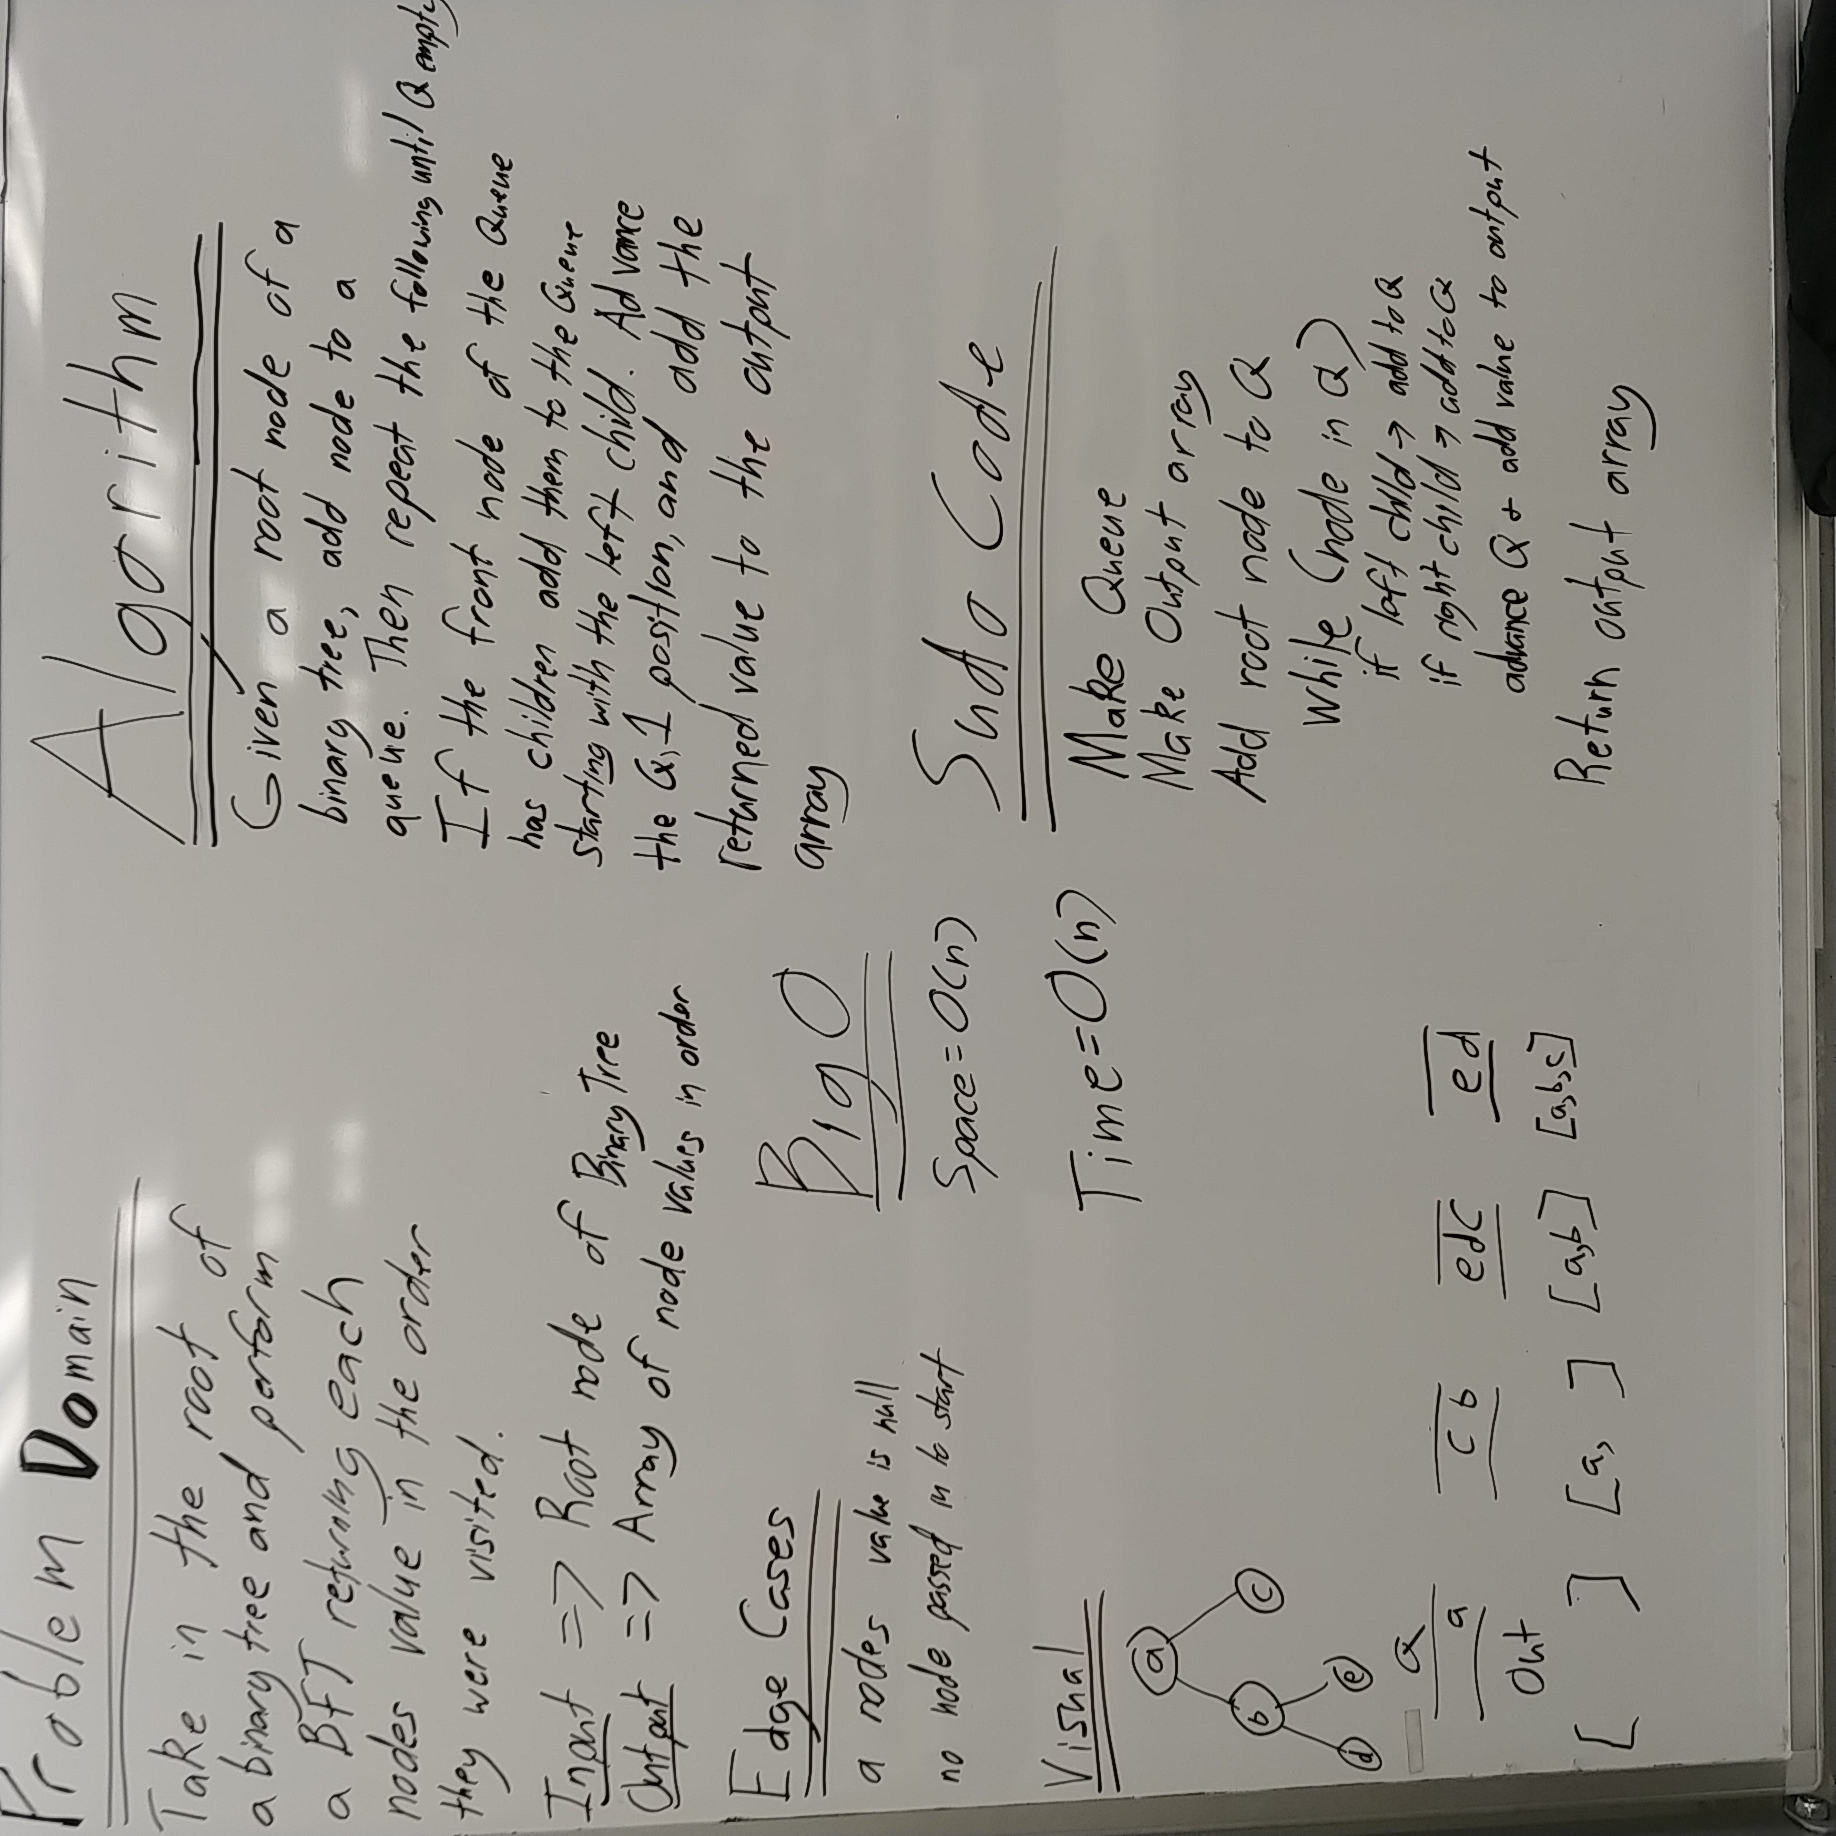 Problem Domain
Take in the root of
a binary tree and perform
a BFT returning each
nodes value in the order
they were visited.
Input => Root node of Binary Tree
Output => Array of node values in order
Edge Cases
a nodes value is null
no node passed in to start
Visual
a
b c
d e
Q
a
c b
edc
ed
Out
[ ]
[a, ]
[a,b]
[a,b,c]
Big O
Space = O(n)
Time = O(n)
Algorithm
Given a root node of a
binary tree, add node to a
queue. Then repeat the following until Q empty
If the front node of the Queue
has children add them to the Queue
starting with the left child. Advance
the Q, 1 position, and add the
returned value to the output
array
Sudo Code
Make Queue
Make Output array
Add root node to Q
While (node in Q)
if left child → add to Q
if right child → add to Q
advance Q + add value to output
Return output array